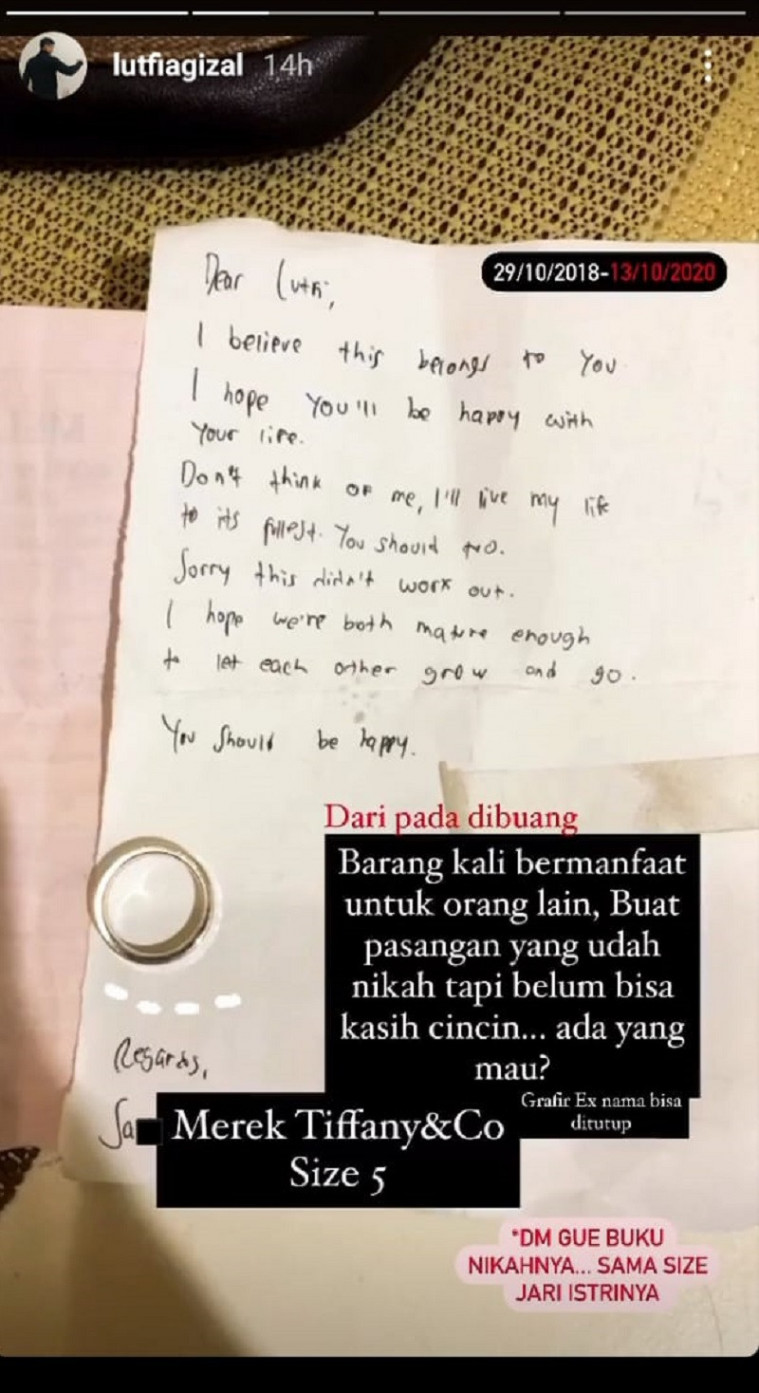 lutfiagizal 14h
29/10/2018-13/10/2020
Dear Lutfi,
I believe this belongs to you
I hope you'll be happy with
your life.
Don't think of me, I'll live my life
to its fullest. You should to.
Sorry this didn't work out.
I hope we're both mature enough
to let each other grow and go.
You should be happy.
Dari pada dibuang
Barang kali bermanfaat
untuk orang lain, Buat
pasangan yang udah
nikah tapi belum bisa
kasih cincin... ada yang
mau?
Grafir Ex nama bisa
ditutup
Regards,
Sa
Merek Tiffany&Co
Size 5
*DM GUE BUKU
NIKAHNYA... SAMA SIZE
JARI ISTRINYA